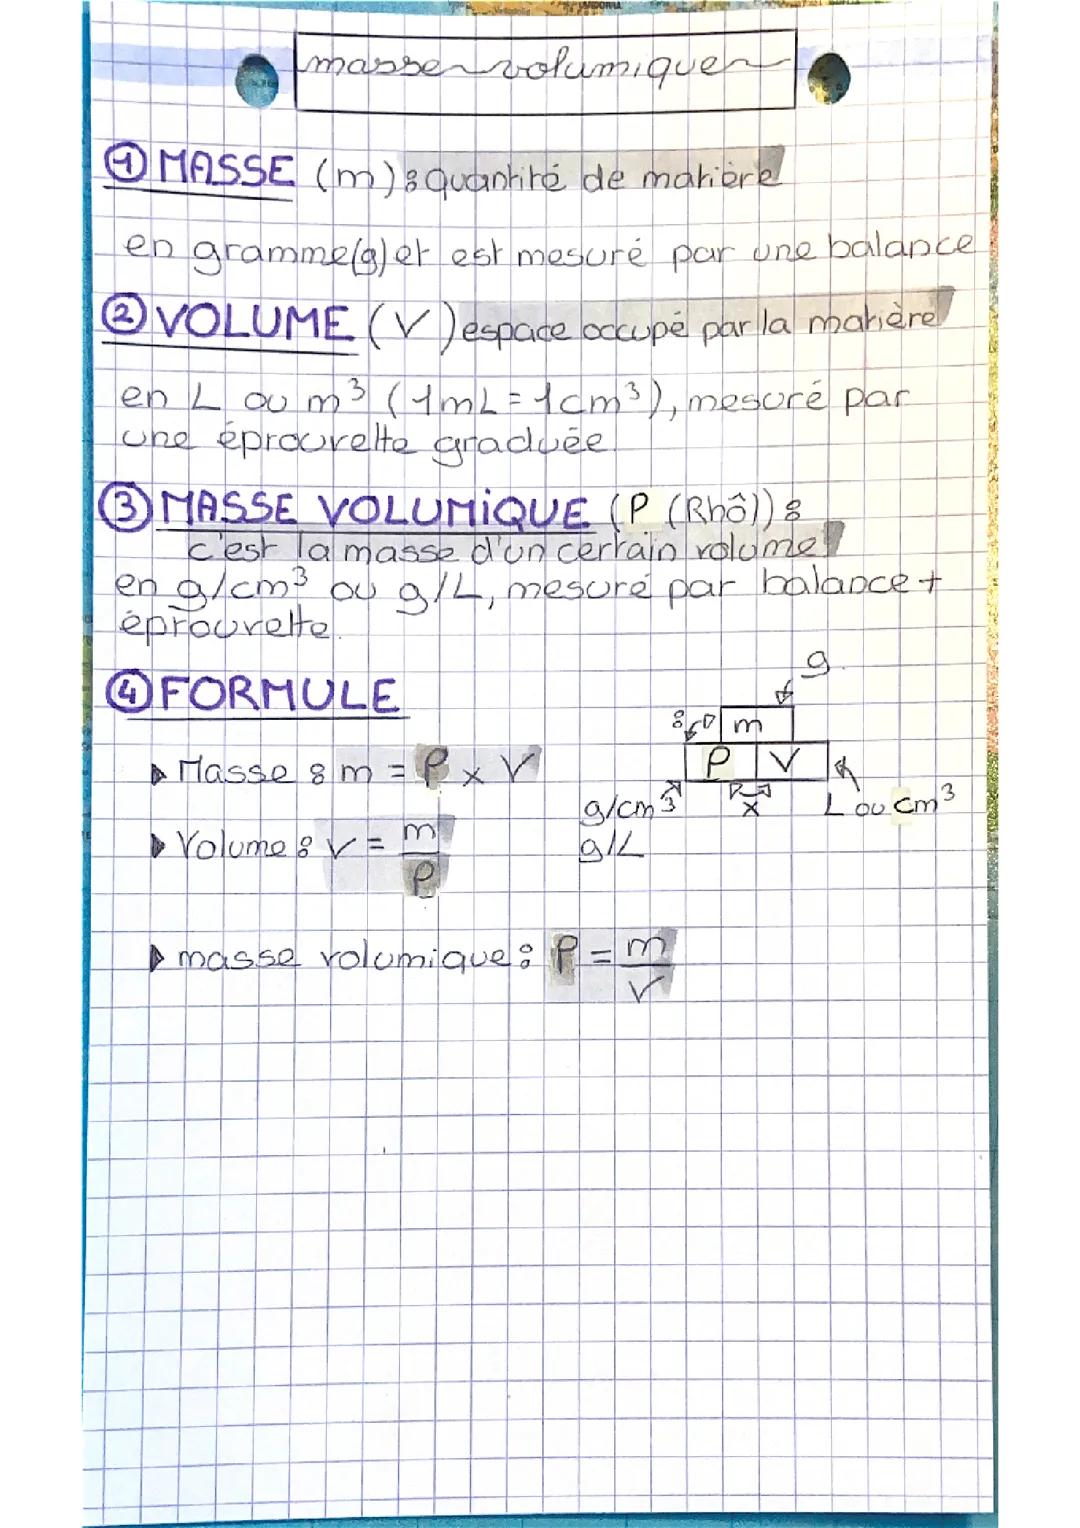 masse volumique
① MASSE (m) : quantité de matière
en gramme(g) et est mesuré par une balance
② VOLUME (V) espace occupé par la matière
en L ou m³ (1mL = 1cm³), mesuré par
une éprouvette graduée.
③ MASSE VOLUMiQUE (ρ (Rhô)) :
c'est la masse d'un certain volume
en g/cm³ ou g/L, mesuré par balance +
éprouvette.
④ FORMULE
g
: m
▶ Masse : m = ρ x V
ρ V
g/cm³ x L ou cm³
g/L
▶ Volume : V = m/ρ
▶ masse volumique : ρ = m/V